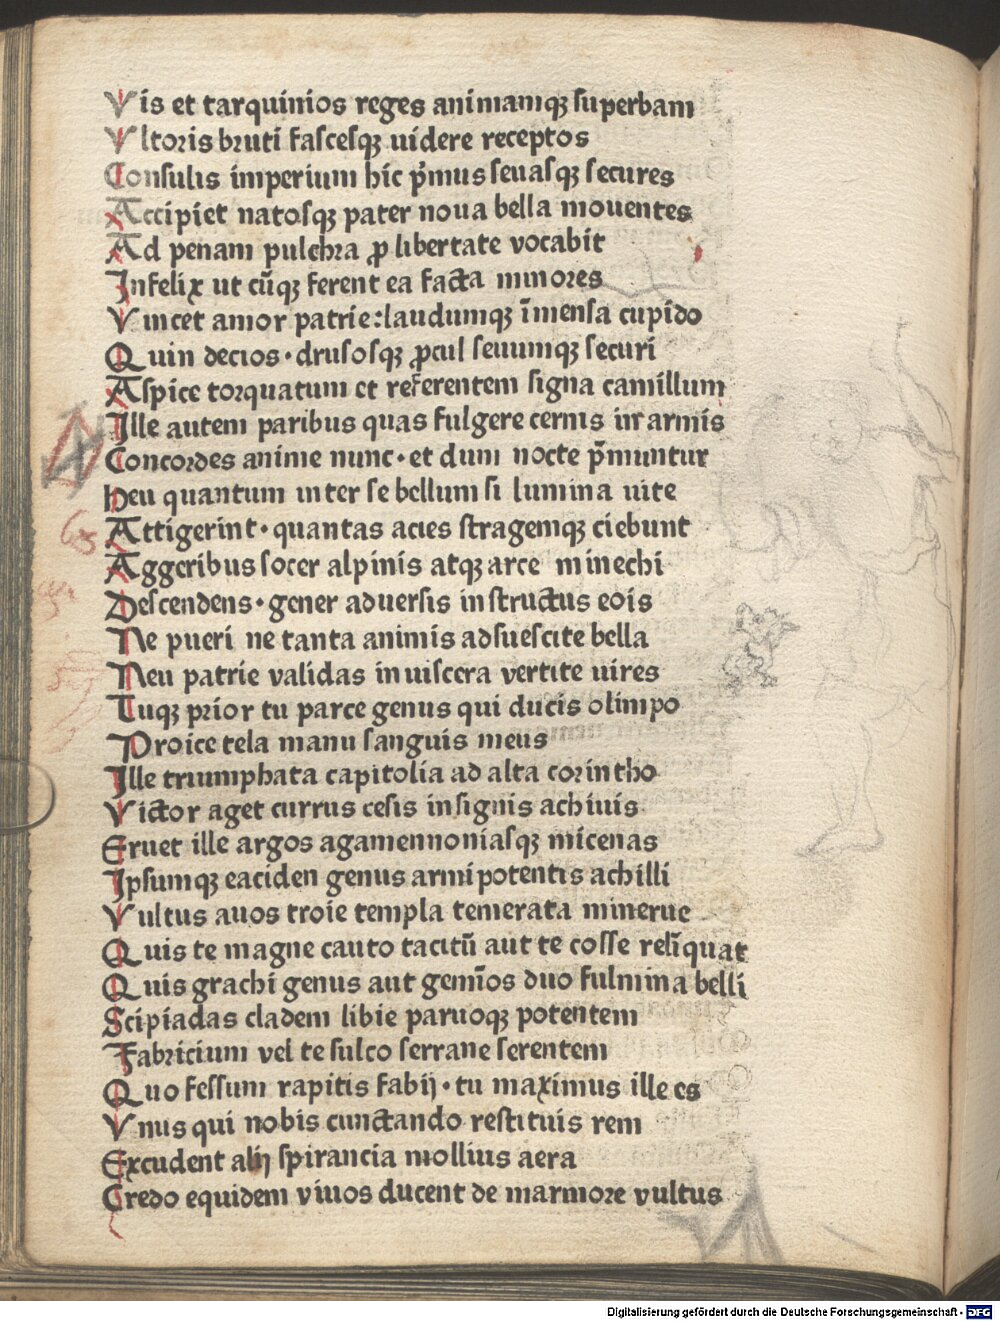 Vis et tarquinios reges animamqꝫ superbam
Vltoris bruti fascesqꝫ uidere receptos
Consulis imperium hic p̄mus seuasqꝫ secures
Accipiet natosqꝫ pater noua bella mouentes
Ad penam pulchra ꝓ libertate vocabit
Infelix ut cūqꝫ ferent ea facta minores
Vincet amor patrie: laudumqꝫ īmensa cupido
Quin decios · drusosqꝫ ꝓcul seuumqꝫ securi
Aspice torquatum et referentem signa camillum
Ille autem paribus quas fulgere cernis in armis
Concordes anime nunc · et dum nocte p̄muntur
Heu quantum inter se bellum si lumina uite
Attigerint · quantas acies stragemqꝫ ciebunt
Aggeribus socer alpinis atqꝫ arce minechi
Descendens · gener aduersis instructus eois
Ne pueri ne tanta animis adsuescite bella
Neu patrie validas in uiscera vertite uires
Tuqꝫ prior tu parce genus qui ducis olimpo
Proice tela manu sanguis meus
Ille triumphata capitolia ad alta corintho
Victor aget currus cesis insignis achiuis
Eruet ille argos agamennoniasqꝫ micenas
Ipsumqꝫ eaciden genus armipotentis achilli
Vultus auos troie templa temerata minerue
Quis te magne cauto tacitū aut te cosse relīquat
Quis grachi genus aut gemīos duo fulmina belli
Scipiadas cladem libie paruoqꝫ potentem
Fabricium vel te sulco serrane serentem
Quo fessum rapitis fabij · tu maximus ille es
Vnus qui nobis cunctando restituis rem
Excudent alij spirancia mollius aera
Credo equidem viuos ducent de marmore vultus
Digitalisierung gefördert durch die Deutsche Forschungsgemeinschaft - DFG